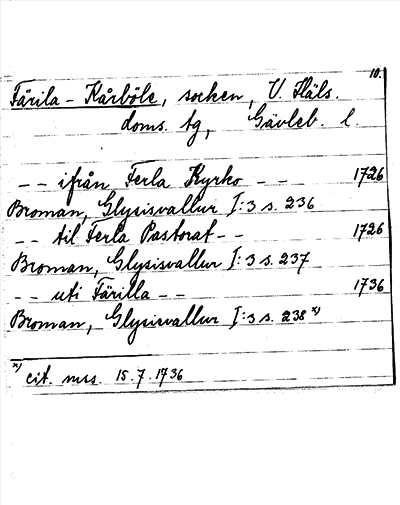 10.
Färila - Kårböle, socken, V. Häls.
doms. tg, Gävleb. l.
-- ifrån Ferla Kyrko -- 1726
Broman, Glysisvallur I:3 s. 236
-- til Ferla Pastorat -- 1726
Broman, Glysisvallur I:3 s. 237
-- uti Färilla -- 1736
Broman, Glysisvallur I:3 s. 238 x)
x) cit. mss. 15.7.1736